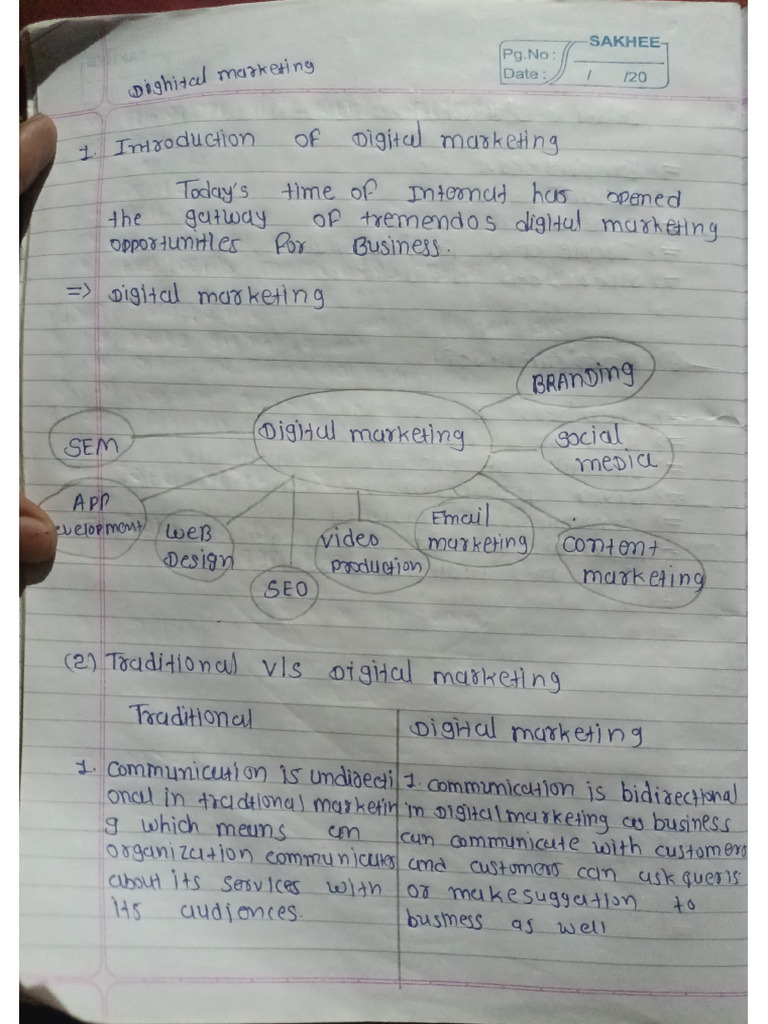 SAKHEE
Pg.No:
Date: / /20
Dighital marketing
1. Introduction of Digital marketing
Today's time of Internat has opened
the gatway of tremendos digital marketing
opportunities for Business.
=> Digital marketing
BRANDing
Digital marketing
SEM
social
media
App
evelopment
WEB
Design
SEO
video
production
Email
marketing
content
marketing
(2) Traditional v/s Digital marketing
Traditional
Digital marketing
1. communication is undirecti
onal in tradtional marketin
g which means an
organization communicates
about its services with
its audiences.
1. communication is bidirectional
in Digital marketing as business
can communicate with customers
and customers can ask queris
or make suggation to
business as well